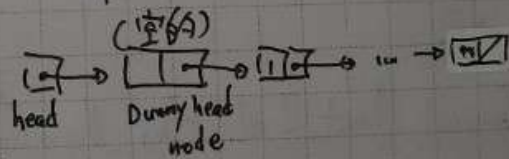 (空的)
1 ... n
head Dummy head
node